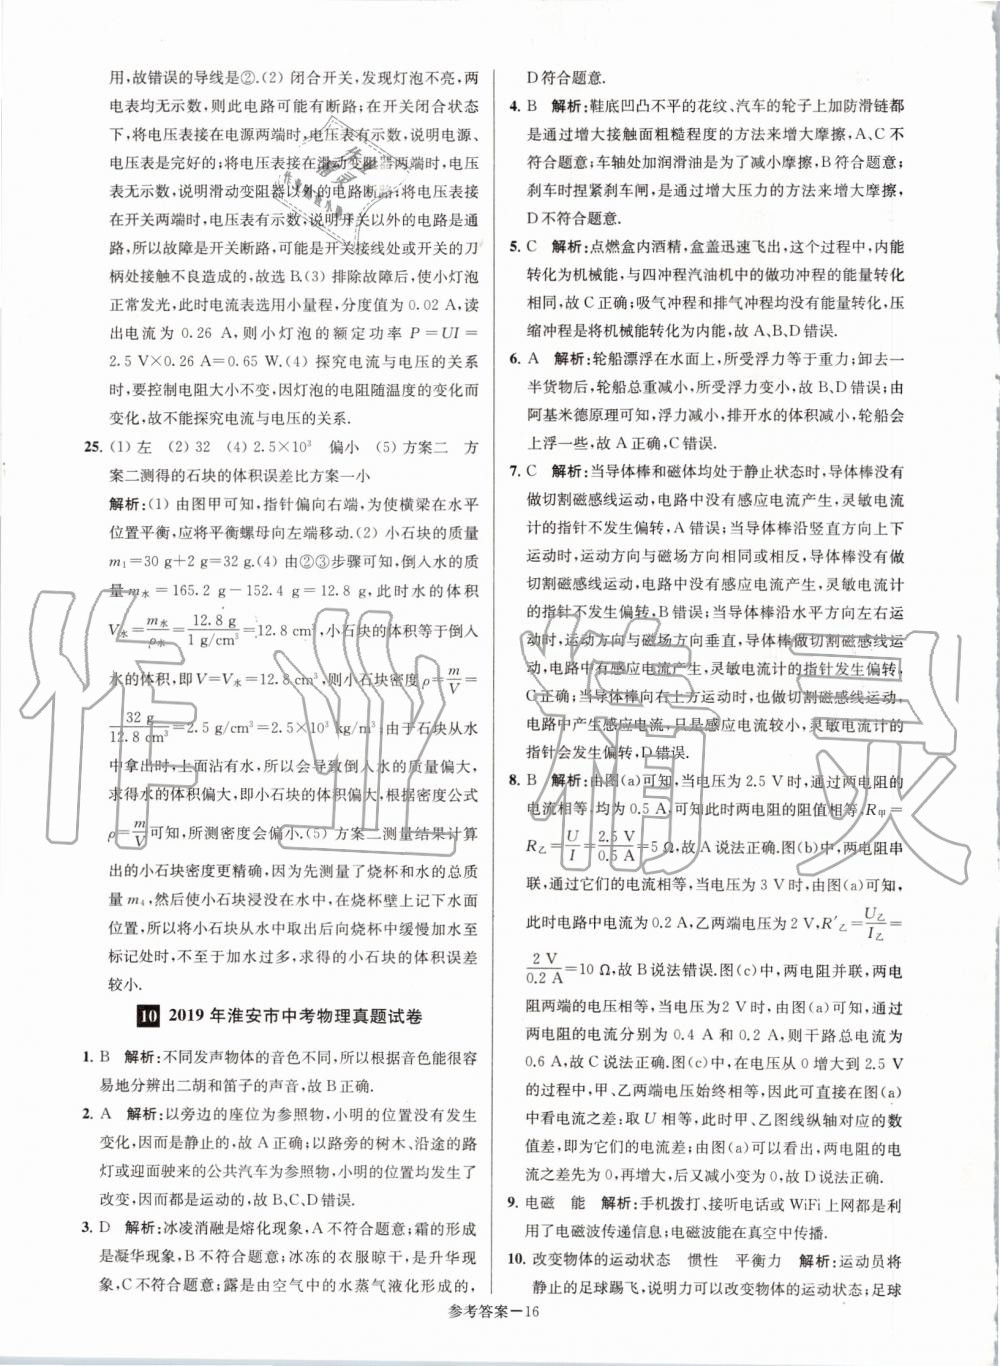 用,故错误的导线是②.(2) 闭合开关,发现灯泡不亮,两
电表均无示数,则此电路可能有断路;在开关闭合状态
下,将电压表接在电源两端时,电压表有示数,说明电源、
电压表是完好的;将电压表接在滑动变阻器两端时,电压表
无示数,说明滑动变阻器以外的电路断路;将电压表接
在开关两端时,电压表有示数,说明开关以外的电路是通
路,所以故障是开关断路,可能是开关接线处或开关的刀
柄处接触不良造成的,故选 B.(3) 排除故障后,使小灯泡
正常发光,此时电流表选用小量程,分度值为 0.02 A,读
出电流为 0.26 A,则小灯泡的额定功率 P=UI=
2.5 V×0.26 A=0.65 W.(4) 探究电流与电压的关系
时,要控制电阻大小不变,因灯泡的电阻随温度的变化而
变化,故不能探究电流与电压的关系.
25. (1) 左 (2) 32 (4) 2.5×10³ 偏小 (5) 方案二 方
案二测得的石块的体积误差比方案一小
解析:(1) 由图甲可知,指针偏向右端,为使横梁在水平
位置平衡,应将平衡螺母向左端移动.(2) 小石块的质量
m₁=30 g+2 g=32 g.(4) 由②③步骤可知,倒入水的质
量 m水=165.2 g-152.4 g=12.8 g,此时水的体积
V水=m水/ρ水=12.8 g/1 g/cm³=12.8 cm³,小石块的体积等于倒入
水的体积,即 V=V水=12.8 cm³,则小石块密度 ρ=m/V=
32 g/12.8 cm³=2.5 g/cm³=2.5×10³ kg/m³;由于石块从水
中拿出时,上面沾有水,所以会导致倒入水的质量偏大,
求得水的体积偏大,即小石块的体积偏大,根据密度公式
ρ=m/V可知,所测密度会偏小.(5) 方案二测量结果计算
出的小石块密度更准确,因为先测量了烧杯和水的总质
量 m₄,然后使小石块浸没在水中,在烧杯壁上记下水面
位置,所以将小石块从水中取出后向烧杯中缓慢加水至
标记处时,不至于加水过多,求得的小石块的体积误差
较小.
10 2019 年淮安市中考物理真题试卷
1. B 解析:不同发声物体的音色不同,所以根据音色能很容
易地分辨出二胡和笛子的声音,故 B 正确.
2. A 解析:以旁边的座位为参照物,小明的位置没有发生
变化,因而是静止的,故 A 正确;以路旁的树木、沿途的路
灯或迎面驶来的公共汽车为参照物,小明的位置均发生了
改变,因而都是运动的,故 B、C、D 错误.
3. D 解析:冰凌消融是熔化现象,A 不符合题意;霜的形成
是凝华现象,B 不符合题意;冰冻的衣服晾干,是升华现
象,C 不符合题意;露是由空气中的水蒸气液化形成的,
D 符合题意.
4. B 解析:鞋底凹凸不平的花纹、汽车的轮子上加防滑链都
是通过增大接触面粗糙程度的方法来增大摩擦,A、C 不
符合题意;车轴处加润滑油是为了减小摩擦,B 符合题意;
刹车时捏紧刹车闸,是通过增大压力的方法来增大摩擦,
D 不符合题意.
5. C 解析:点燃盒内酒精,盒盖迅速飞出,这个过程中,内能
转化为机械能,与四冲程汽油机中的做功冲程的能量转化
相同,故 C 正确;吸气冲程和排气冲程均没有能量转化,压
缩冲程是将机械能转化为内能,故 A、B、D 错误.
6. A 解析:轮船漂浮在水面上,所受浮力等于重力;卸去一
半货物后,轮船总重减小,所受浮力变小,故 B、D 错误;由
阿基米德原理可知,浮力减小,排开水的体积减小,轮船会
上浮一些,故 A 正确,C 错误.
7. C 解析:当导体棒和磁体均处于静止状态时,导体棒没有
做切割磁感线运动,电路中没有感应电流产生,灵敏电流
计的指针不发生偏转,A 错误;当导体棒沿竖直方向上下
运动时,运动方向与磁场方向相同或相反,导体棒没有做
切割磁感线运动,电路中没有感应电流产生,灵敏电流计
的指针不发生偏转,B 错误;当导体棒沿水平方向左右运
动时,运动方向与磁场方向垂直,导体棒做切割磁感线运
动,电路中有感应电流产生,灵敏电流计的指针发生偏转,
C 正确;当导体棒向右上方运动时,也做切割磁感线运动,
电路中产生感应电流,只是感应电流较小,灵敏电流计的
指针会发生偏转,D 错误.
8. B 解析:由图(a)可知,当电压为 2.5 V 时,通过两电阻的
电流相等,均为 0.5 A,可知此时两电阻的阻值相等,R甲=
R乙=U/I=2.5 V/0.5 A=5 Ω,故 A 说法正确.图(b)中,两电阻串
联,通过它们的电流相等,当电压为 3 V 时,由图(a)可知,
此时电路中电流为 0.2 A,乙两端电压为 2 V,R′乙=U乙/I乙=
2 V/0.2 A=10 Ω,故 B 说法错误.图(c)中,两电阻并联,两电
阻两端的电压相等,当电源电压为 2 V 时,由图(a)可知,
通过两电阻的电流分别为 0.4 A 和 0.2 A,则干路总电流为
0.6 A,故 C 说法正确.图(c)中,在电压从 0 增大到 2.5 V
的过程中,甲、乙两端电压始终相等,因此可直接在图(a)
中看电流之差;取 U 相等,此时甲、乙图线纵轴对应的数
值差,即为它们的电流差;由图(a)可以看出,两电阻的电
流之差先从 0 增大,后又减小变为 0,故 D 说法正确.
9. 电磁 能 解析:手机拨打、接听电话或 WiFi 上网都是利
用了电磁波传递信息;电磁波能在真空中传播.
10. 改变物体的运动状态 惯性 平衡力 解析:运动员将
静止的足球踢飞,说明力可以改变物体的运动状态;足球
参考答案—16
作业精灵